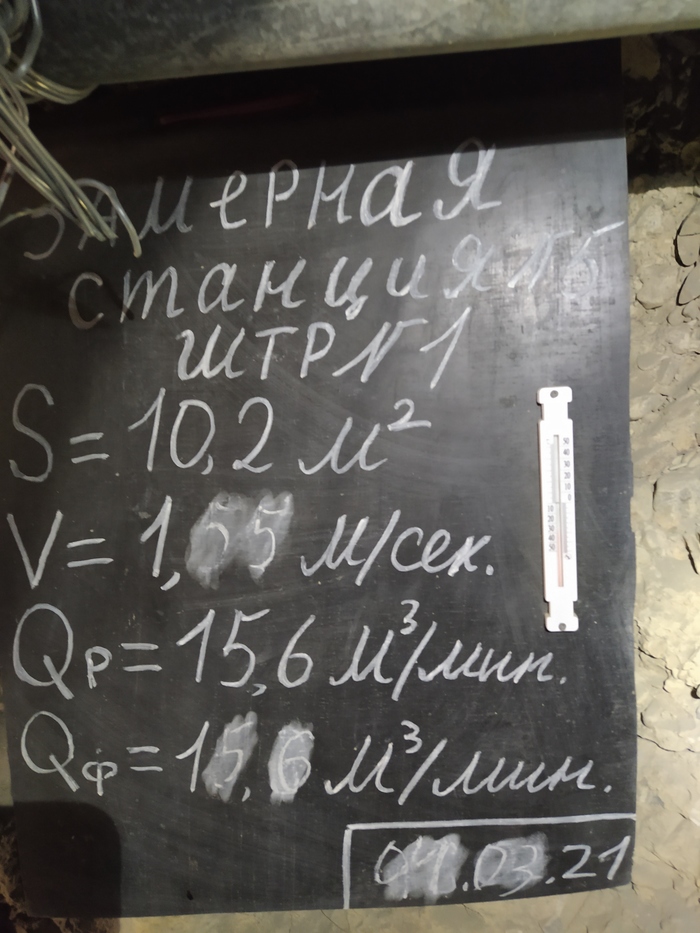 ЗАМЕРНАЯ
СТАНЦИЯ №5
ШТР №1
S = 10,2 м²
V = 1,55 м/сек.
Qр = 15,6 м³/мин.
Qф = 15,6 м³/мин.
01.03.21